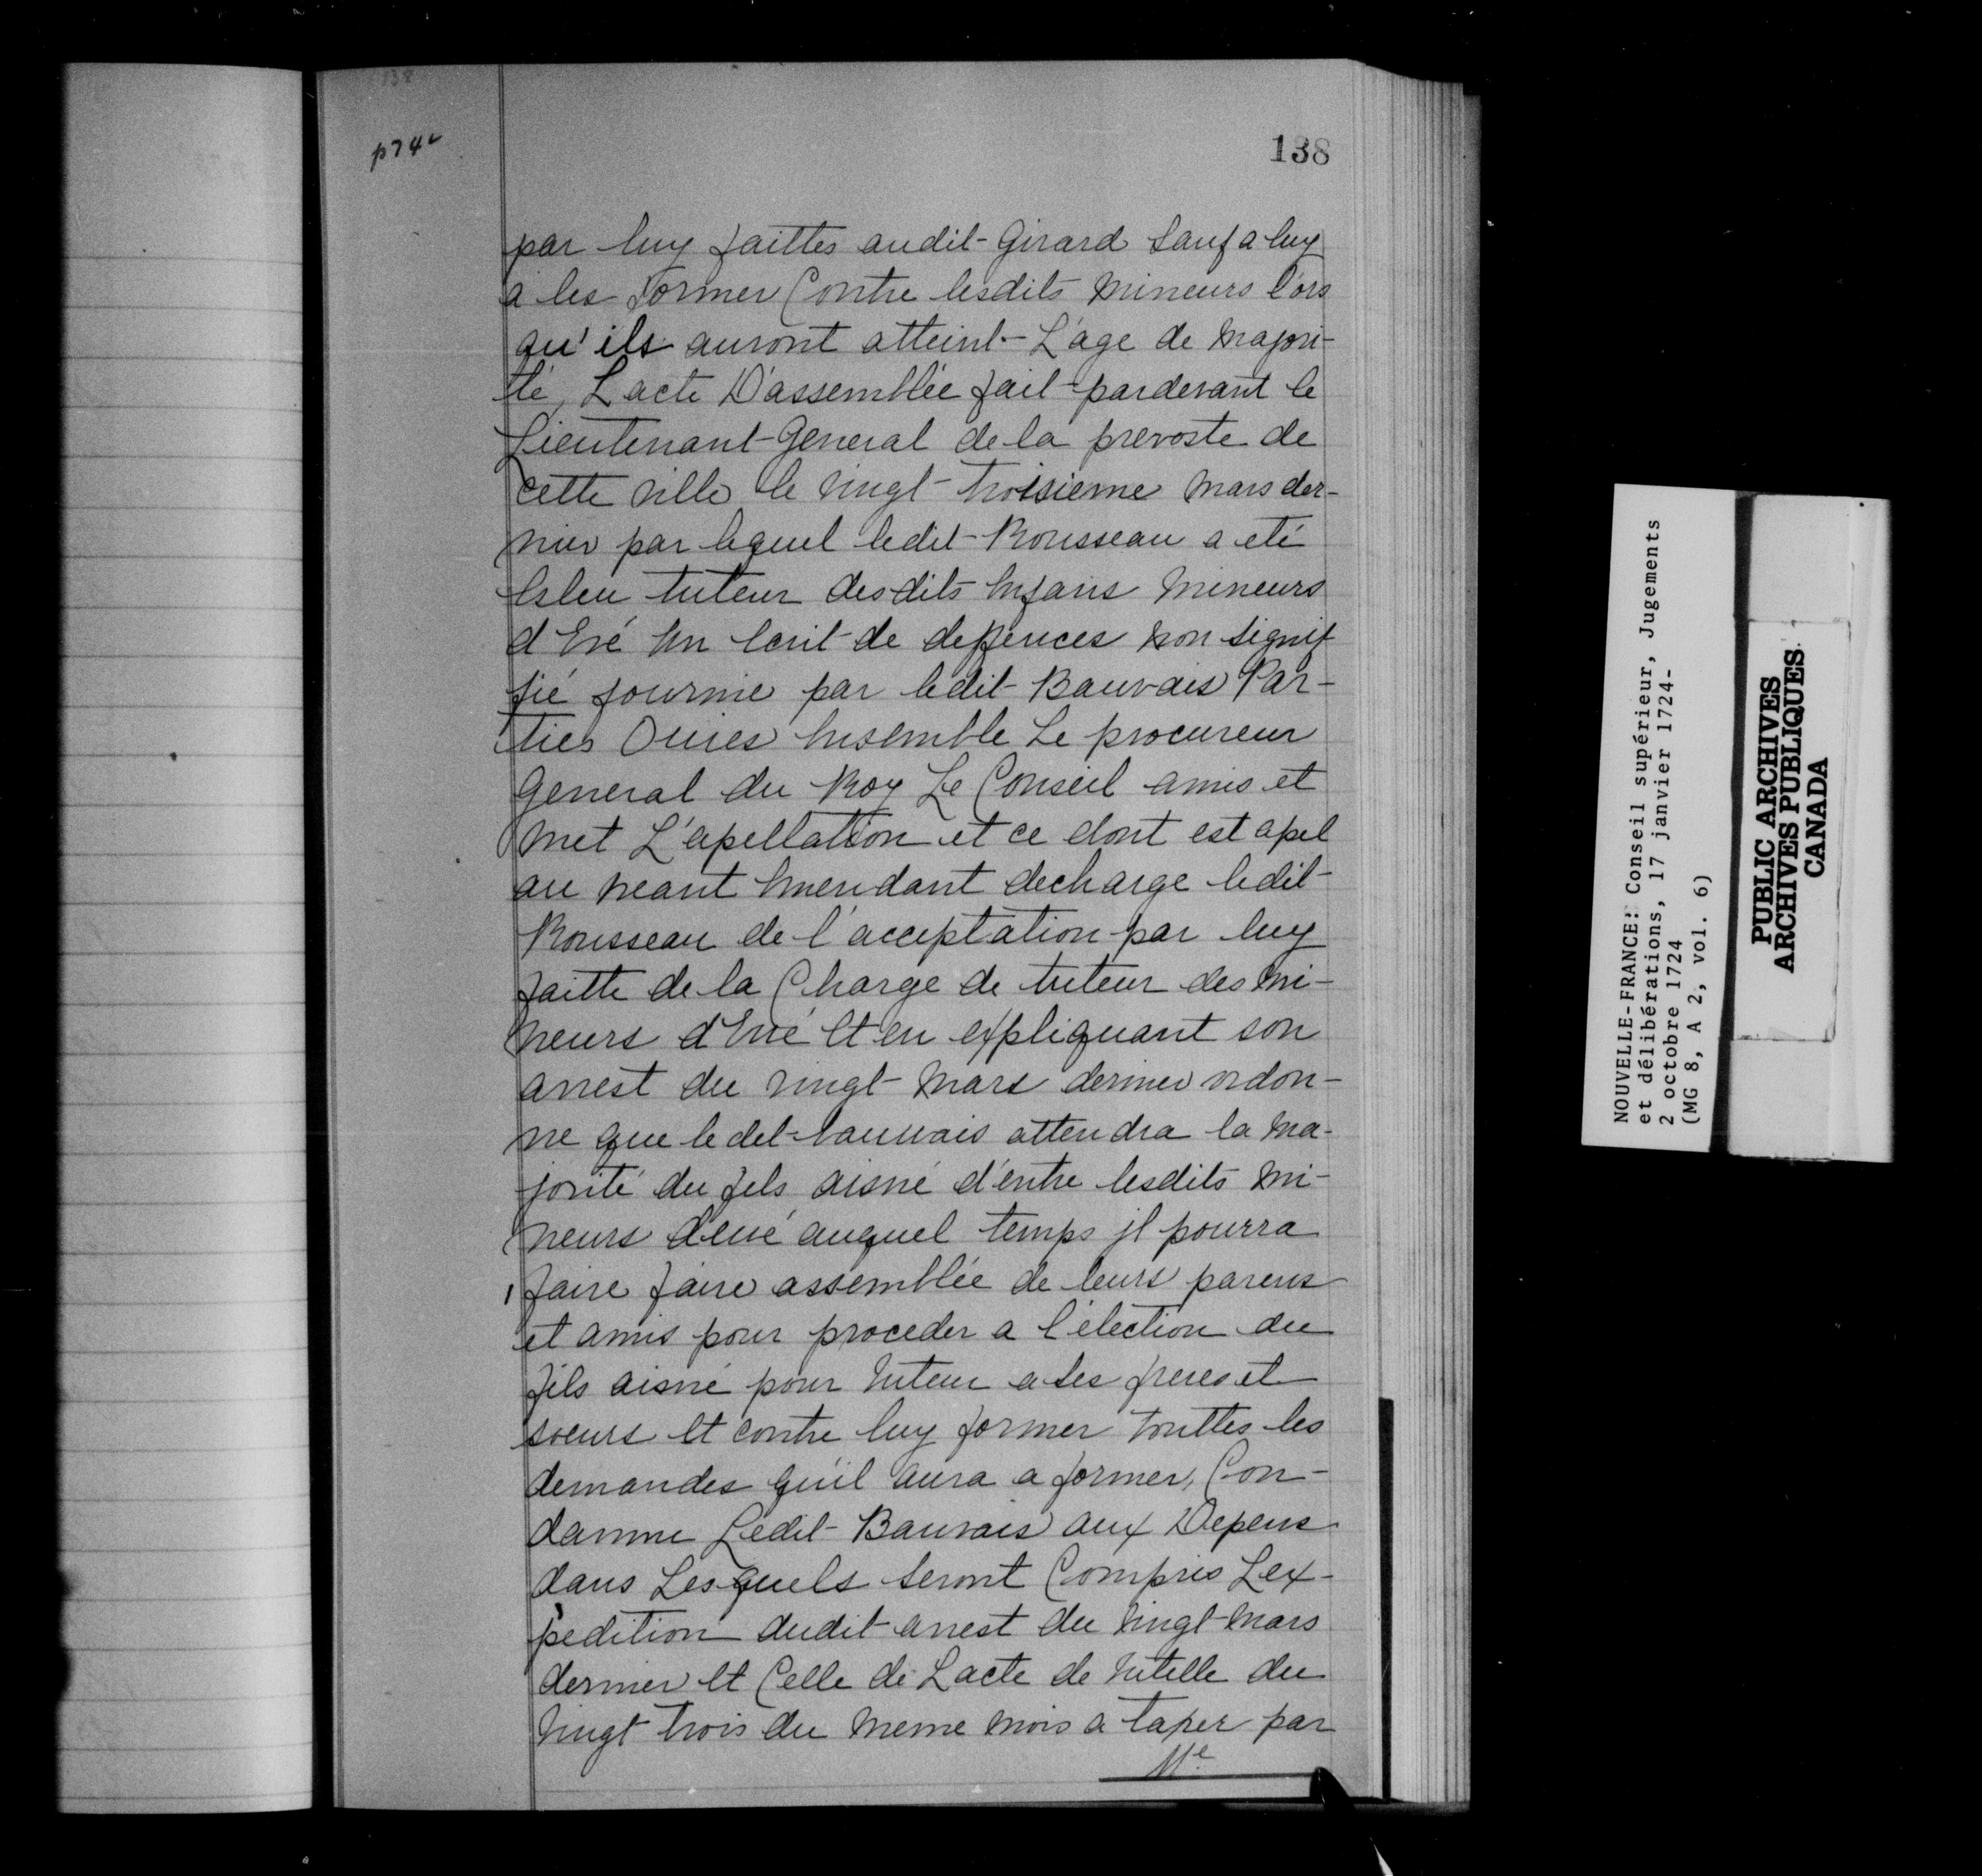 138
p74v
138
par luy faittes audit Girard Sauf a luy
a les former Contre lesdits Mineurs lors
qu'ils auront atteint L'age de Majori-
té, L'acte D'assemblée fait pardevant le
Lieutenant General de la prevoste de
cette ville le vingt troisieme Mars der-
nier par lequel ledit Rousseau a eté
Esleu tuteur desdits Enfans Mineurs
d'Eré Un Ecrit de deffences non signif
fié fournie par ledit Bauvais Par-
ties Ouies Ensemble Le procureur
General du Roy Le Conseil a mis et
met L'apellation et ce dont est apel
au neant Emendant decharge ledit
Rousseau de l'acceptation par luy
faitte de la Charge de tuteur des Mi-
neurs d'Eré Et en expliquant son
arrest du vingt Mars dernier ordon-
ne que ledit bauvais attendra la Ma-
jorité du fils aisné d'entre lesdits Mi-
neurs deué auquel temps jl pourra
faire faire assemblée de leurs parens
et amis pour proceder a l'election du
fils aisné pour tuteur a ses freres et
soeurs Et contre luy former touttes les
demandes qu'il aura a former, Con-
damne Ledit Bauvais aux Depens
dans Lesquels seront Compris L'ex-
pedition dudit arrest du vingt Mars
dernier Et Celle de L'acte de tutelle du
vingt trois du meme mois a taxer par
Me
NOUVELLE-FRANCE: Conseil supérieur, Jugements
et délibérations, 17 janvier 1724-
2 octobre 1724
(MG 8, A 2, vol. 6)
PUBLIC ARCHIVES
ARCHIVES PUBLIQUES
CANADA